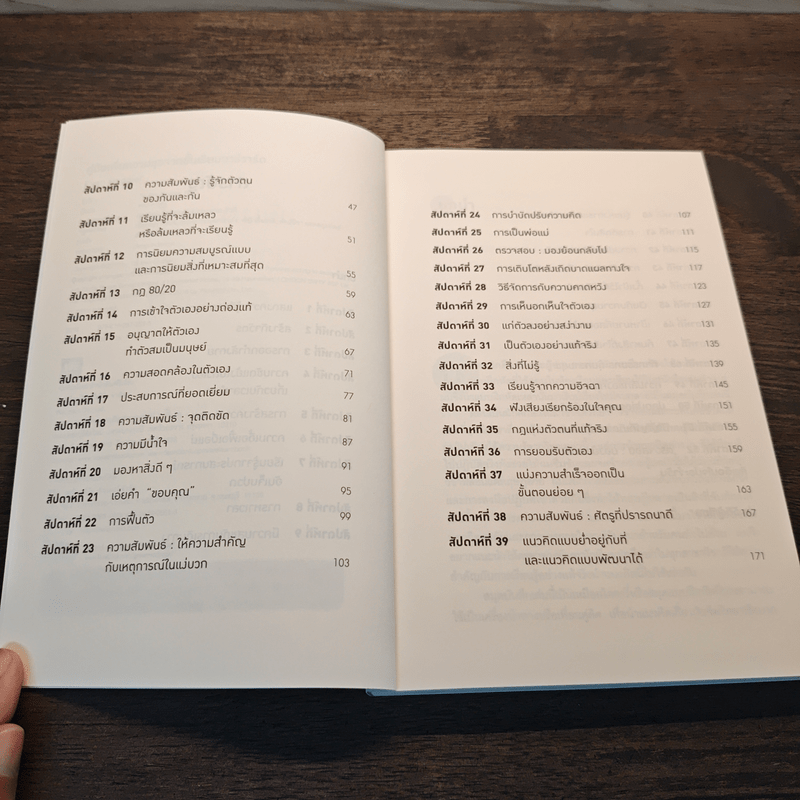 สัปดาห์ที่ 10 ความสัมพันธ์ : รู้จักตัวตน
ของกันและกัน 47
สัปดาห์ที่ 11 เรียนรู้ที่จะล้มเหลว
หรือล้มเหลวที่จะเรียนรู้ 51
สัปดาห์ที่ 12 การนิยมความสมบูรณ์แบบ
และการนิยมสิ่งที่เหมาะสมที่สุด 55
สัปดาห์ที่ 13 กฎ 80/20 59
สัปดาห์ที่ 14 การเข้าใจตัวเองอย่างถ่องแท้ 63
สัปดาห์ที่ 15 อนุญาตให้ตัวเอง
ทำตัวสมเป็นมนุษย์ 67
สัปดาห์ที่ 16 ความสอดคล้องในตัวเอง 71
สัปดาห์ที่ 17 ประสบการณ์ที่ยอดเยี่ยม 77
สัปดาห์ที่ 18 ความสัมพันธ์ : จุดติดขัด 81
สัปดาห์ที่ 19 ความมีน้ำใจ 87
สัปดาห์ที่ 20 มองหาสิ่งดี ๆ 91
สัปดาห์ที่ 21 เอ่ยคำ “ขอบคุณ” 95
สัปดาห์ที่ 22 การฟื้นตัว 99
สัปดาห์ที่ 23 ความสัมพันธ์ : ให้ความสำคัญ
กับเหตุการณ์ในแง่บวก 103
สัปดาห์ที่ 24 การบำบัดปรับความคิด 107
สัปดาห์ที่ 25 การเป็นพ่อแม่ 111
สัปดาห์ที่ 26 ตรวจสอบ : มองย้อนกลับไป 115
สัปดาห์ที่ 27 การเติบโตหลังเกิดบาดแผลทางใจ 117
สัปดาห์ที่ 28 วิธีจัดการกับความคาดหวัง 123
สัปดาห์ที่ 29 การเห็นอกเห็นใจตัวเอง 127
สัปดาห์ที่ 30 แก่ตัวลงอย่างสง่างาม 131
สัปดาห์ที่ 31 เป็นตัวเองอย่างแท้จริง 135
สัปดาห์ที่ 32 สิ่งที่ไม่รู้ 139
สัปดาห์ที่ 33 เรียนรู้จากความอิจฉา 145
สัปดาห์ที่ 34 ฟังเสียงเรียกร้องในใจคุณ 151
สัปดาห์ที่ 35 กฎแห่งตัวตนที่แท้จริง 155
สัปดาห์ที่ 36 การยอมรับตัวเอง 159
สัปดาห์ที่ 37 แบ่งความสำเร็จออกเป็น
ขั้นตอนย่อย ๆ 163
สัปดาห์ที่ 38 ความสัมพันธ์ : ศัตรูที่ปรารถนาดี 167
สัปดาห์ที่ 39 แนวคิดแบบย่ำอยู่กับที่
และแนวคิดแบบพัฒนาได้ 171